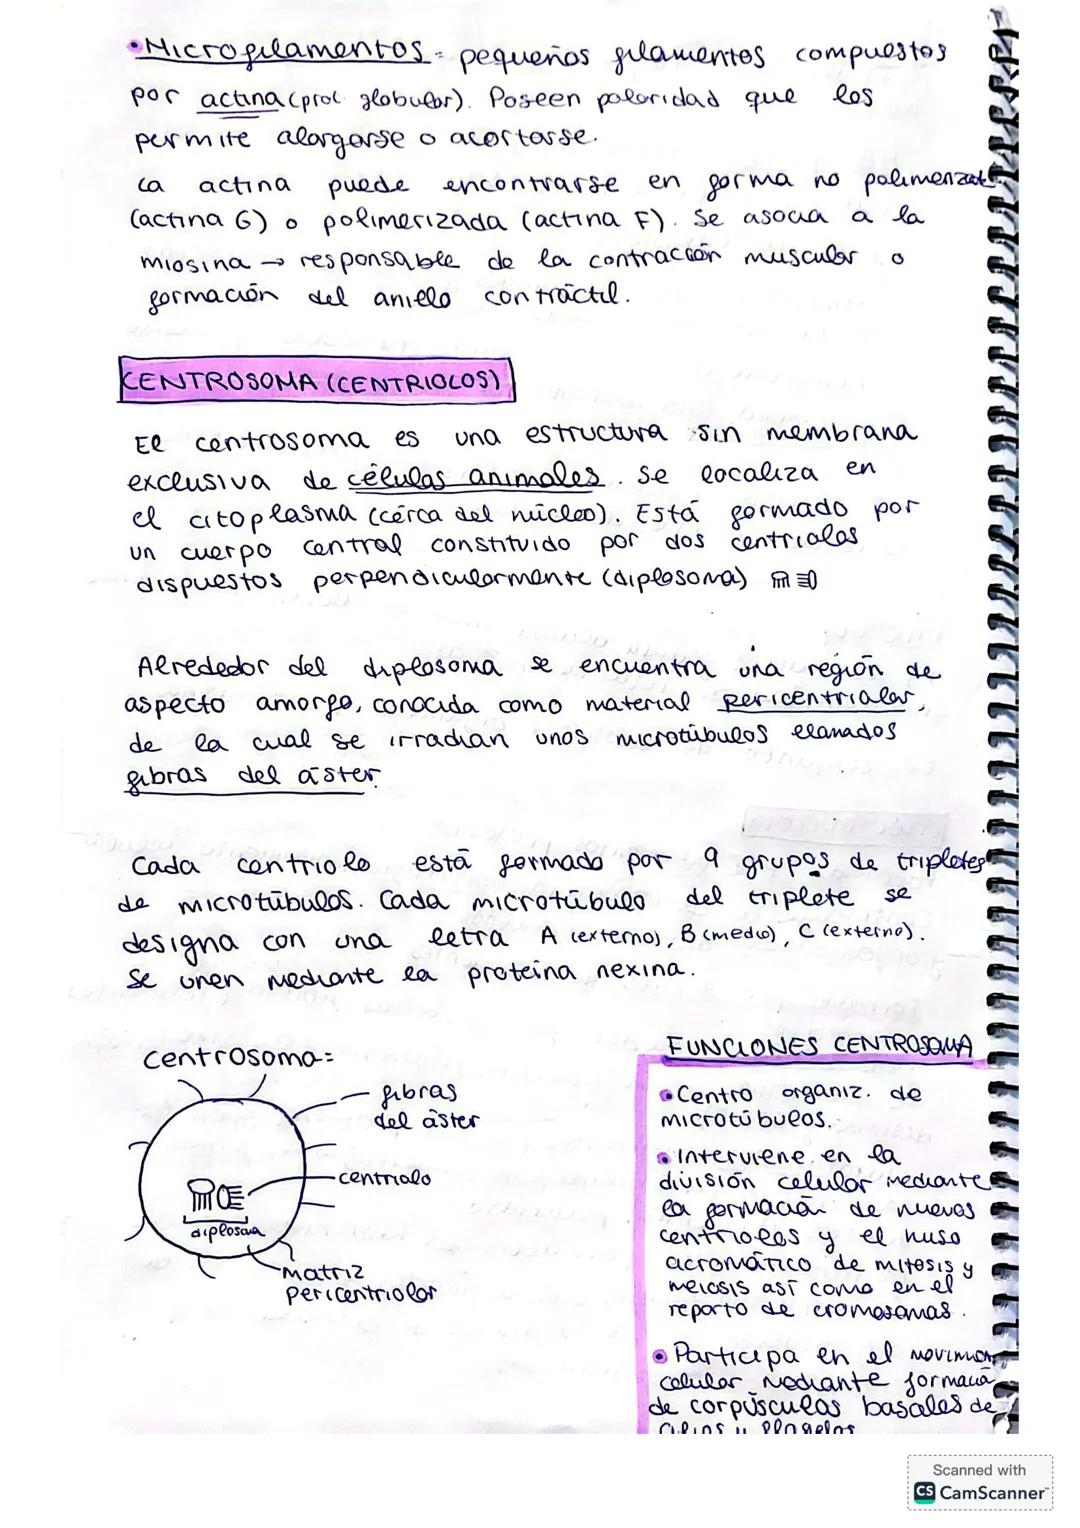 •Microfilamentos = pequeños filamentos compuestos
por actina (prot globular). Poseen polaridad que los
permite alargarse o acortarse.
La actina puede encontrarse en forma no polimerizada
(actina G) o polimerizada (actina F). Se asocia a la
miosina → responsable de la contracción muscular o
formación del anillo contráctil.
CENTROSOMA (CENTRIOLOS)
El centrosoma es una estructura sin membrana
exclusiva de células animales. Se localiza en
el citoplasma (cerca del núcleo). Está formado por
un cuerpo central constituido por dos centriolos
dispuestos perpendicularmente (diplosoma)
Alrededor del diplosoma se encuentra una región de
aspecto amorfo, conocida como material pericentriolar,
de la cual se irradian unos microtúbulos llamados
fibras del áster.
Cada centriolo está formado por 9 grupos de tripletes
de microtúbulos. Cada microtúbulo del triplete se
designa con una letra A (externo), B (medio), C (externo).
Se unen mediante la proteína nexina.
Centrosoma:
fibras
del áster
centriolo
diplosoma
Matriz
pericentriolar
FUNCIONES CENTROSOMA
•Centro organiz. de
microtúbulos.
•Interviene en la
división celular mediante
la formación de nuevos
centriolos y el huso
acromático de mitosis y
meiosis así como en el
reparto de cromosomas.
•Participa en el movimien
celular mediante formació
de corpúsculos basales de
cilios y flagelos
Scanned with
CS CamScanner